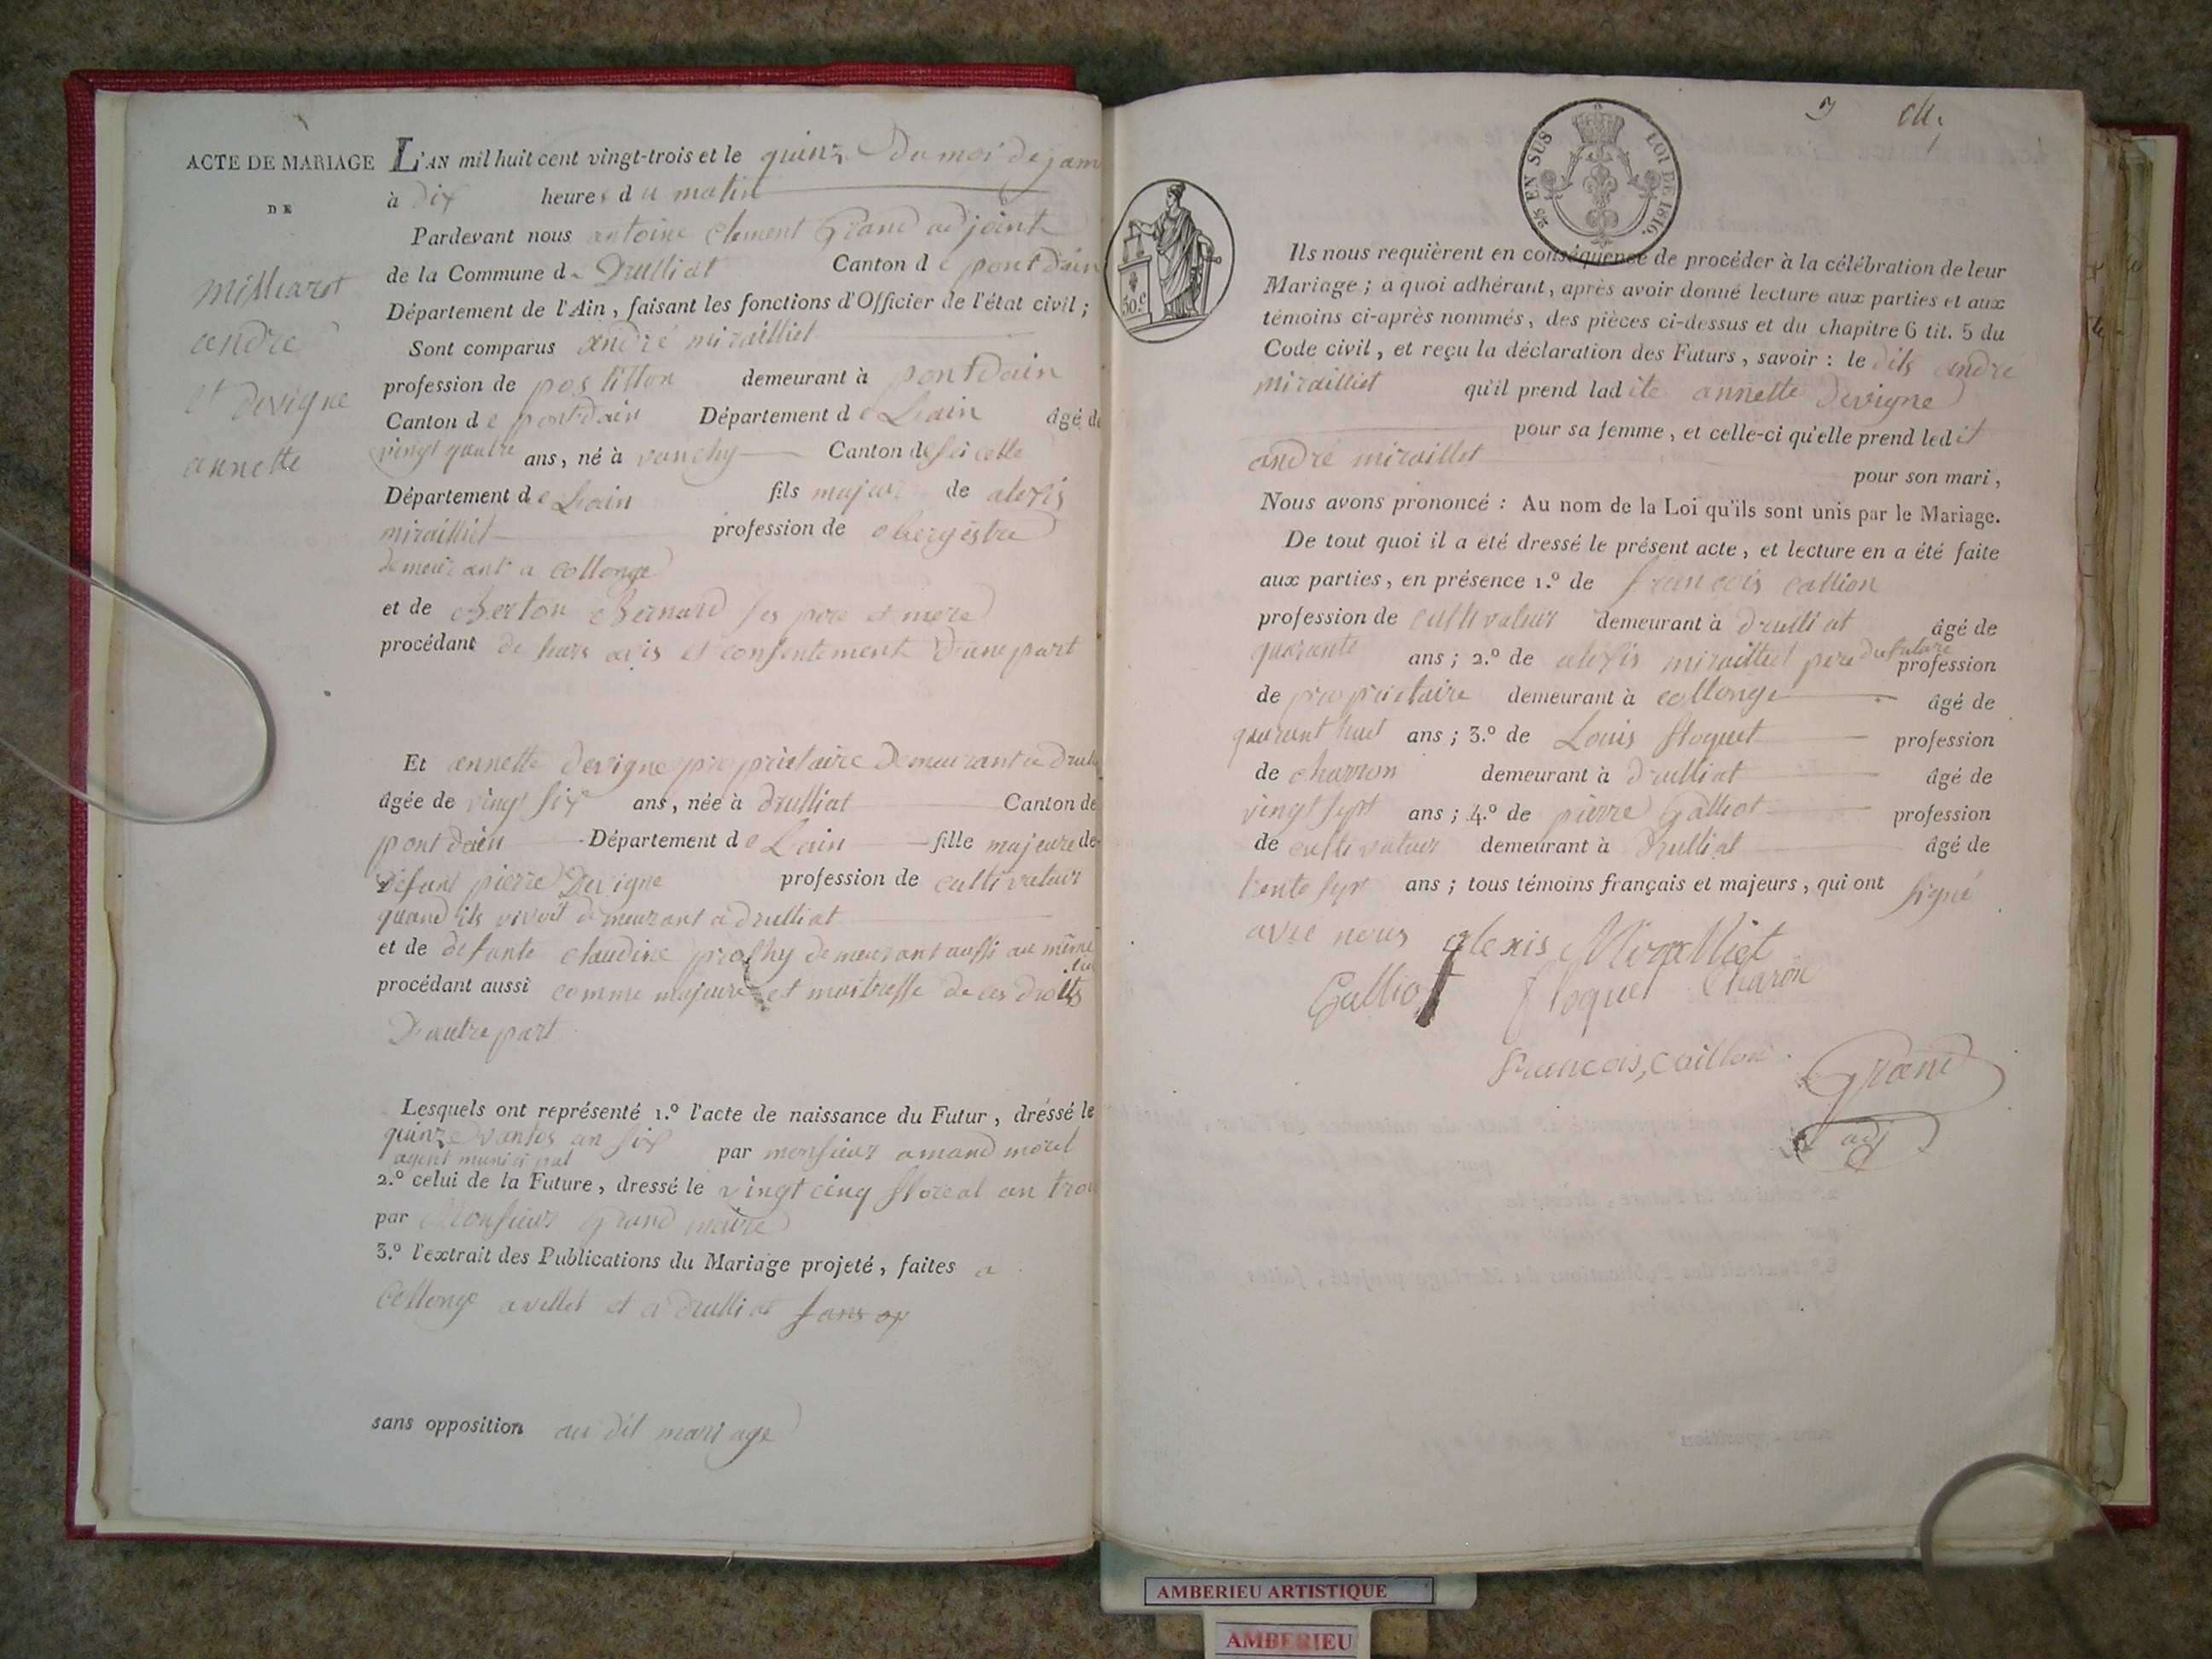 ACTE DE MARIAGE
DE
andré
et devigne
annette
L'AN mil huit cent vingt-trois et le quinz du moi de janv
à dix heures du matin
Pardevant nous antoine Clement Grand adjoint
de la Commune de Drulliat Canton de pontdain
Département de l'Ain, faisant les fonctions d'Officier de l'état civil;
Sont comparus andré mirailliet
profession de postillon demeurant à pontdain
Canton de pontdain Département de Lain âgé de
vingt quatre ans, né à vanchy Canton de
Département de Lain fils majeur de alexis
mirailliet profession de obergistre
demeurant a collonge
et de Berton Bernard ses pere et mere
procédant de leurs avis et consentement d'une part
Et annette devigne propriétaire Demeurant a drull
âgée de vingt six ans, née à drulliat Canton de
pont dain Département de Lain fille majeure de
défunt pierre Devigne profession de cultivateur
quand ils vivoit demeurant a drulliat
et de defunte claudine demeurant aussi au même
lieu
procédant aussi comme majeure et maitresse de ces droits
D'autre part
Lesquels ont représenté 1.º l'acte de naissance du Futur, dressé le
quinze vantos an six par monsieur amand morel
agent munisipal
2.º celui de la Future, dressé le vingt cinq floreal an troi
par Monsieur Grand maire
3.º l'extrait des Publications du Mariage projeté, faites a
Collonge a villet et a drulliat sans op
sans opposition au dit mariage
25 EN SUS LOI DE 1816.
50.c
Ils nous requièrent en conséquence de procéder à la célébration de leur
Mariage; a quoi adhérant, après avoir donné lecture aux parties et aux
témoins ci-après nommés, des pièces ci-dessus et du chapitre 6 tit. 5 du
Code civil, et reçu la déclaration des Futurs, savoir: le dits andre
mirailliet qu'il prend ladite annette Devigne
pour sa femme, et celle-ci qu'elle prend ledit
andré miraillet
pour son mari,
Nous avons prononcé: Au nom de la Loi qu'ils sont unis par le Mariage.
De tout quoi il a été dressé le présent acte, et lecture en a été faite
aux parties, en présence 1.º de françois callion
profession de cultivateur demeurant à drulliat âgé de
quarante ans; 2.º de alexis mirailliet pere du future profession
de propriétaire demeurant à collonge âgé de
quarant huit ans; 3.º de Louis floquet profession
de charron demeurant à drulliat âgé de
vingt sept ans; 4.º de pierre Galliot profession
de cultivateur demeurant à Drulliat âgé de
trente sept ans; tous témoins français et majeurs, qui ont signé
avec nous alexis Miralliet
Galliot floquet Charon
francois, caillon Grand
adj
AMBERIEU ARTISTIQUE
AMBERIEU